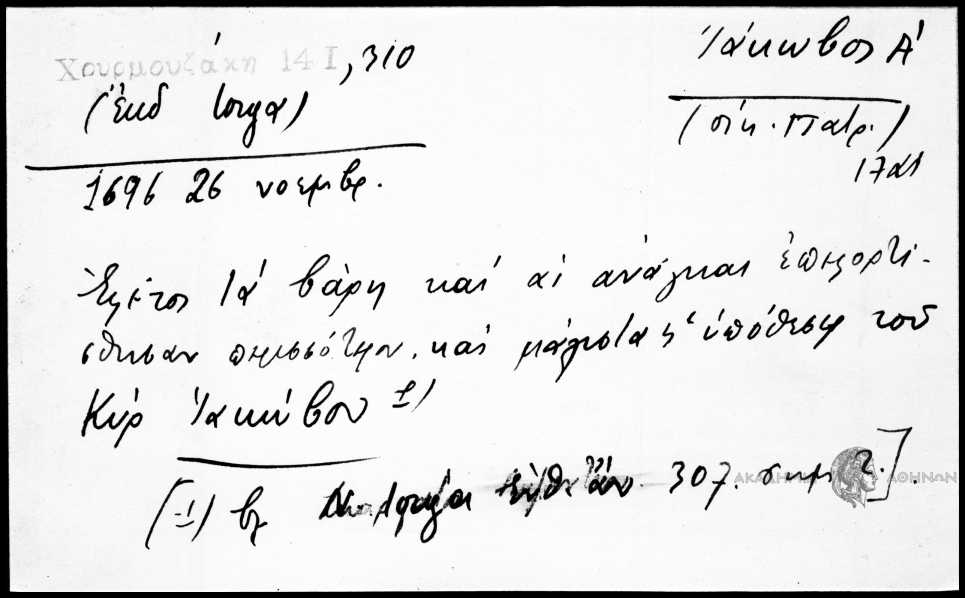 Χουρμουζάκη 14 Ι, 310
(ἐκδ Ἰόργα)
1696 26 νοεμβρ.
Ἰάκωβος Α΄
(οἰκ. Πατρ.)
17α1
Ἐφέτος τά βάρη καί αἱ ἀνάγκαι ἐπεφορτί-
σθησαν περισσότερον, καί μάλιστα ἡ ὑπόθεσις τοῦ
Κύρ Ἰακώβου 1)
[1) βλ 307. σημ 2.].
ΑΚΑΔΗΜΙΑ ΑΘΗΝΩΝ